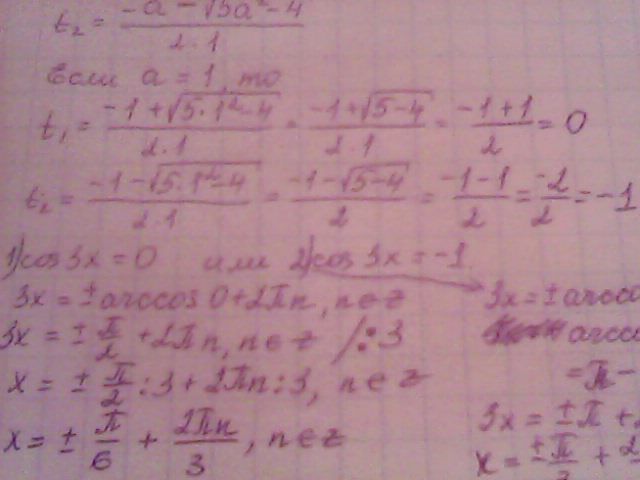 t₂ = (-a - √5a² - 4) / 2·1
Если a = 1, то
t₁ = (-1 + √5·1² - 4) / 2·1 = (-1 + √5 - 4) / 2·1 = (-1 + 1) / 2 = 0
t₂ = (-1 - √5·1² - 4) / 2·1 = (-1 - √5 - 4) / 2 = (-1 - 1) / 2 = -2/2 = -1
1) cos 3x = 0 или 2) cos 3x = -1
3x = ± arccos 0 + 2πn, n ∈ z
3x = ± π/2 + 2πn, n ∈ z /:3
x = ± π/2 : 3 + 2πn : 3, n ∈ z
x = ± π/6 + 2πn/3, n ∈ z
3x = ± arcco
arcco
= π -
3x = ± π +
x = ± π/3 + 2